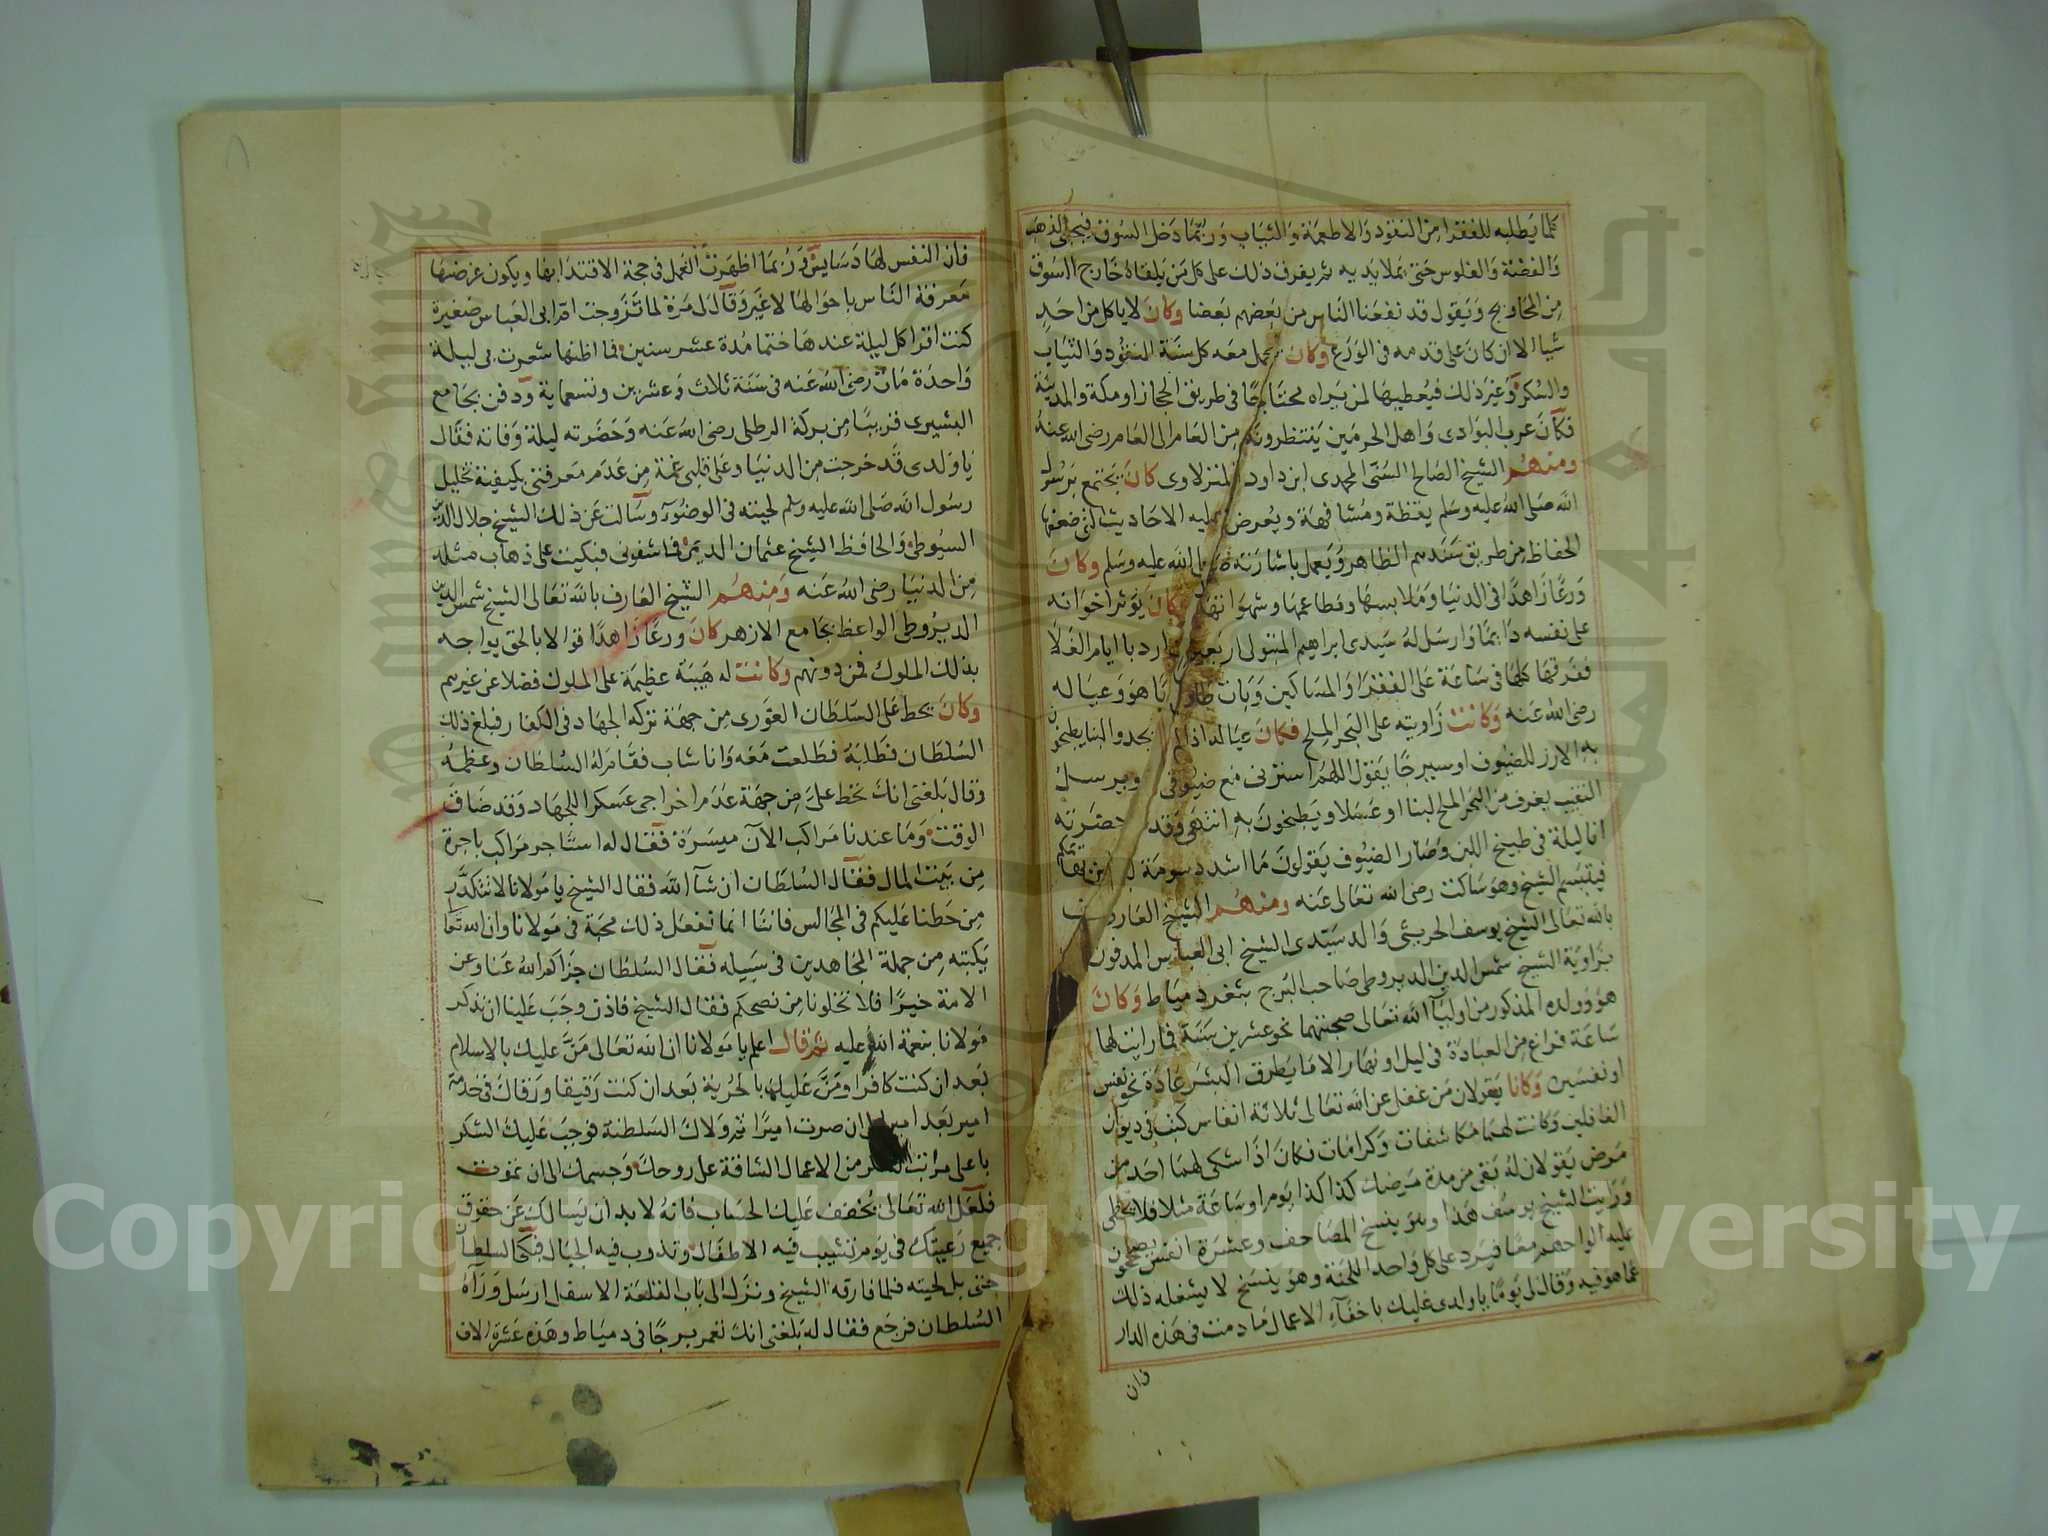 كلما يطلبه للفقرا من النقود والاطعمة والثياب وربما دخل السوق فيجبى الذهب
والفضة والفلوس حتى يملا يديه ثم يفرق ذلك على كل من يلقاه خارج السوق
من المحاويج ويقول قد نفعنا الناس من بعضهم بعضا وكان لا ياكل من احد
شيا الا ان كان على قدمه فى الورع وكان يحمل معه كل سنة النقود والثياب
والسكر وغير ذلك فيعطيها لمن يراه محتاجا فى طريق الحجاز او مكة والمدينة
فكان عرب البوادى واهل الحرمين ينتظرونه من العام الى العام رضى الله عنه
ومنهم الشيخ الصالح السنى المحمدى ابن داود المنزلاوى كان يجتمع برسول
الله صلى الله عليه وسلم يقظة ومشافهة ويعرض عليه الاحاديث التى ضعفها
الحفاظ من طريق سندهم الظاهر ويعمل باشارته صلى الله عليه وسلم وكان
ورعا زاهدا فى الدنيا وملابسها ومطاعمها وشهواتها وكان يؤثر اخوانه
على نفسه دايما وارسل له سيدى ابراهيم المتبولى اربعين اردبا ايام الغلا
ففرقها كلها فى ساعة على الفقرا والمساكين وبات طاوى يا هو وعياله
رضى الله عنه وكانت زاويته على البحر الملح فكان عياله اذا لم يجدوا لبنا يطبخون
به الارز للضيوف او سيرجا يقول اللهم استرنى مع ضيوفى ويرسل
النقيب يغرف من البحر الملح لبنا او عسلا ويطبخون به انتهى وقد حضرته
انا ليلة فى طبيخ اللبن وصار الضيوف يقولون ما اشد دسومة لبن بقركم
فيتبسم الشيخ وهو ساكت رضى الله تعالى عنه ومنهم الشيخ العارف
بالله تعالى الشيخ يوسف الحريثى والد سيدى الشيخ ابى العباس المدفون
بزاوية الشيخ شمس الدين الديروطى صاحب البرج بثغر دمياط وكان
هو وولده المذكور من اوليآ الله تعالى صحبتهما نحو عشرين سنة فما رايت لهما
ساعة فراغ من العبادة فى ليل او نهار الا ما يطرق البشر عادة نحو نفس
او نفسين وكانا يقولان من غفل عن الله تعالى ثلاثة انفاس كتب فى ديوان
الغافلين وكانت لهما مكاشفات وكرامات فكان اذا شكى لهما احد من
مرض يقولان له بقى من مدة مرضك كذا كذا يوم او ساعة مثلا فلا يخطى
ورايت الشيخ يوسف هذا وهو ينسخ المصاحف وعشرة انفس يصححون
عليه الواحهم معا فيرد على كل واحد اللحنة وهو ينسخ لا يشغله ذلك
عما هو فيه وقال لى يوما يا ولدى عليك باخفآء الاعمال ما دمت فى هذه الدار
فان
فان النفس لها دسايس وربما اظهرت العمل فى حجة الاقتدا بها ويكون غرضها
معرفة الناس باحوالها لا غير وقال لى مرة لما تزوجت ام ابى العباس صغيرة
كنت اقرا كل ليلة عندها ختما مدة عشر سنين فما اظنها شعرت بى ليلة
واحدة مات رضى الله عنه فى سنة ثلاث وعشرين وتسعماية ودفن بجامع
البشيرى قريبا من بركة الرطلى رضى الله عنه وحضرته ليلة وفاته فقال
يا ولدى قد خرجت من الدنيا وعلى قلبى غمة من عدم معرفتى بكيفية تخليل
رسول الله صلى الله عليه وسلم لحيته فى الوضوء وسالت عن ذلك الشيخ جلال الدين
السيوطى والحافظ الشيخ عثمان الديمى فما شفونى فبكيت على ذهاب مثله
من الدنيا رضى الله عنه ومنهم الشيخ العارف بالله تعالى الشيخ شمس الدين
الديروطى الواعظ بجامع الازهر كان ورعا زاهدا قوالا بالحق يواجه
بذلك الملوك فمن دونهم وكانت له هيبة عظيمة على الملوك فضلا عن غيرهم
وكان يحط على السلطان الغورى من جهة تركه الجهاد فى الكفار فبلغ ذلك
السلطان فطلبه فطلعت معه وانا شاب فقام له السلطان وعظمه
وقال بلغنى انك تحط على من جهة عدم اخراجى عسكرا للجهاد وقد ضاق
الوقت وما عندنا مراكب الآن ميسرة فقال له استاجر مراكب باجرة
من بيت المال فقال السلطان ان شآ الله فقال الشيخ يا مولانا لا تتكدر
من حطنا عليكم فى المجالس فاننا انما نفعل ذلك محبة فى مولانا وان الله تعا
يكتبه من جملة المجاهدين فى سبيله فقال السلطان جزاكم الله عنا وعن
الامة خيرا فلا تخلونا من نصحكم فقال الشيخ فاذن وجب علينا ان نذكر
مولانا بنعمة الله عليه ثم قال اعلم يا مولانا ان الله تعالى من عليك بالاسلام
بعد ان كنت كافرا ومن عليك بالحرية بعد ان كنت رقيقا ورقاك فى خدمة
امير بعد امير الى ان صرت اميرا ثم ولاك السلطنة فوجب عليك الشكر
باعلى مراتب الشكر من الاعمال الشاقة على روحك وجسمك الى ان تموت
فلعل الله تعالى يخفف عليك الحساب فانه لا بد ان يسالك عن حقوق
جميع رعيتك فى يوم تشيب فيه الاطفال وتذوب فيه الجبال فبكى السلطان
حتى بل لحيته فلما فارقه الشيخ ونزل الى باب القلعة الاسفل ارسل ورآه
السلطان فرجع فقال له بلغنى انك تعمر برجا فى دمياط وهذه عشرة الاف
Copyright © King Saud University